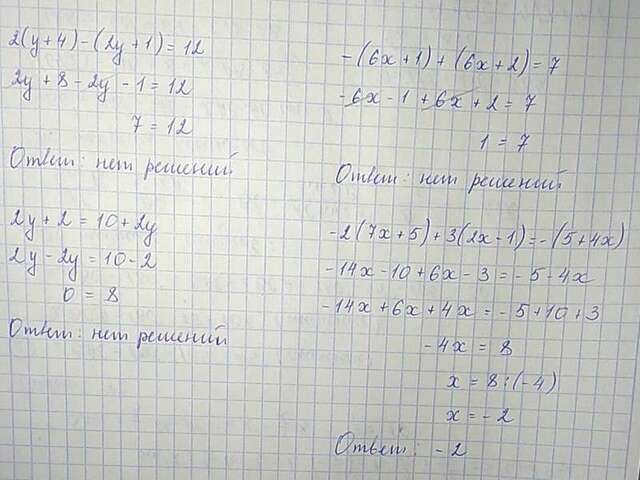 2(y+4)-(2y+1)=12
2y+8-2y-1=12
7=12
Ответ: нет решений
2y+2=10+2y
2y-2y=10-2
0=8
Ответ: нет решений
-(6x+1)+(6x+2)=7
-6x-1+6x+2=7
1=7
Ответ: нет решений
-2(7x+5)+3(2x-1)=-(5+4x)
-14x-10+6x-3=-5-4x
-14x+6x+4x=-5+10+3
-4x=8
x=8:(-4)
x=-2
Ответ: -2